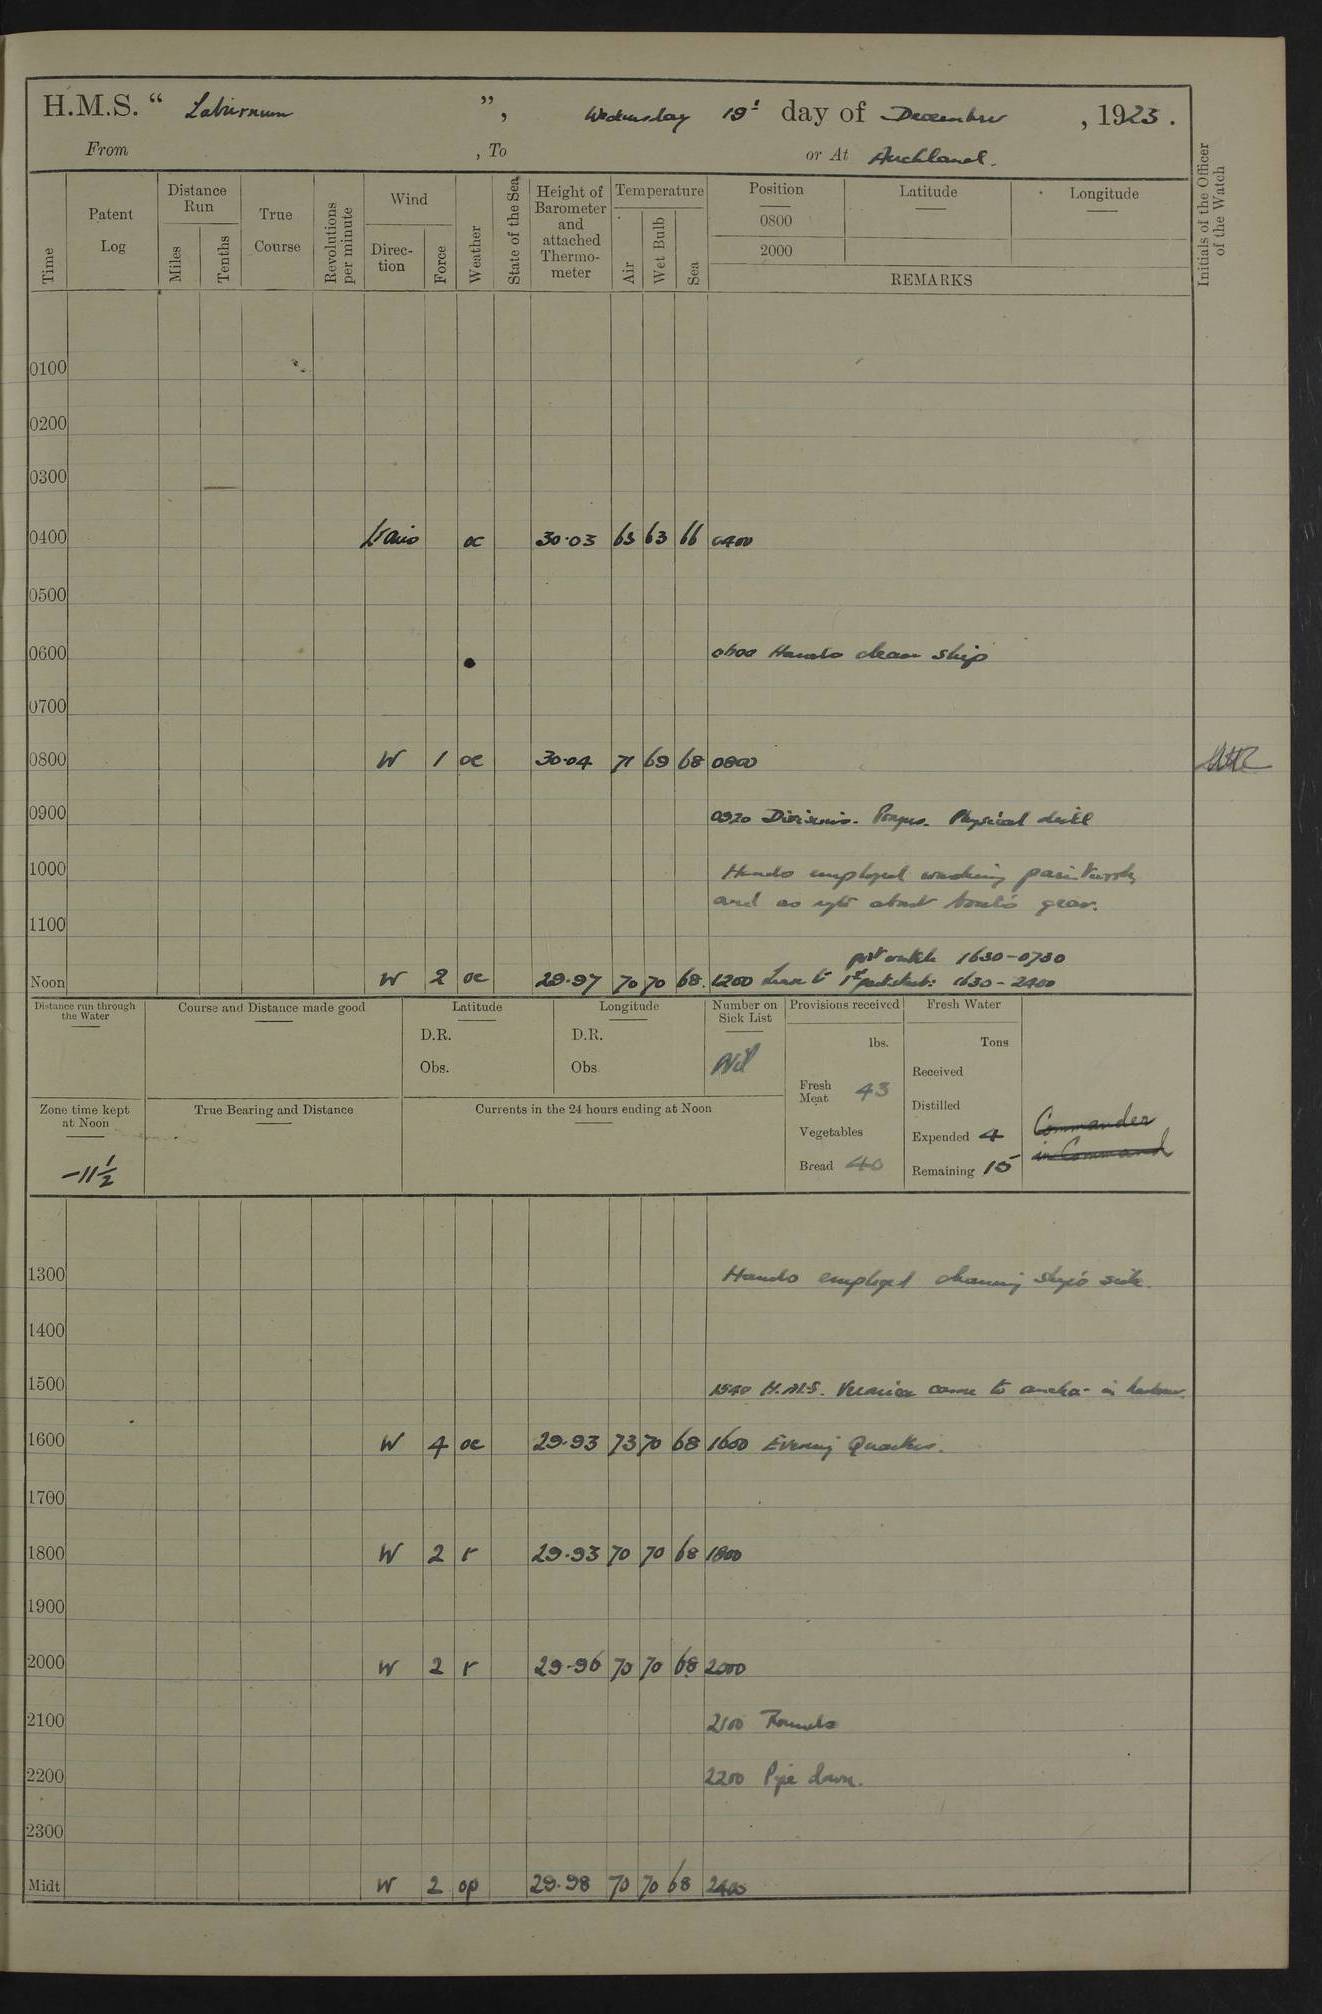 H.M.S. “ Laburnum ”, Wednesday 19th day of December, 1923.
From , To or At Auckland.
Time Patent Log Distance Run Miles Tenths True Course Revolutions per minute Wind Direc-tion Force Weather State of the Sea Height of Barometer and attached Thermo-meter Temperature Air Wet Bulb Sea Position 0800 2000 Latitude Longitude REMARKS Initials of the Officer of the Watch
0100
0200
0300
0400 oc 30·03 65 63 66 0400
0500
0600 0600 Hands clean ship
0700
0800 W 1 oc 30·04 71 69 68 0800
0900 0920 Divisions. Prayers. Physical drill
1000 Hands employed washing paintwork
and as reqte about boat's gear.
1100
port watch 1630-0730
Noon W 2 oc 29·97 70 70 68 1200 Leave to 1st part stbd: 1630 - 2400
Distance run through the Water Course and Distance made good Latitude Longitude Number on Sick List Provisions received Fresh Water
D.R. D.R. lbs. Tons
Obs. Obs Nil Received
Fresh Meat 43
Distilled
Zone time kept at Noon True Bearing and Distance Currents in the 24 hours ending at Noon
Vegetables Expended 4 Commander
-11½ Bread 40 Remaining 15 in Command
1300 Hands employed cleaning ship's side.
1400
1500 1540 H.M.S. Veronica came to anchor in harbour.
1600 W 4 oc 29·93 73 70 68 1600 Evening Quarters.
1700
1800 W 2 r 29·93 70 70 68 1800
1900
2000 W 2 r 29·96 70 70 68 2000
2100 2100 Rounds
2200 2200 Pipe down.
2300
Midt W 2 op 29·98 70 70 68 2400